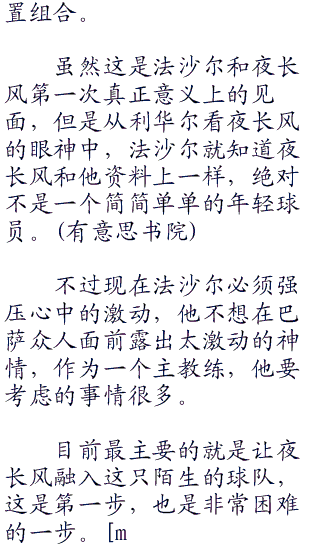 置组合。
虽然这是法沙尔和夜长
风第一次真正意义上的见
面，但是从利华尔看夜长风
的眼神中，法沙尔就知道夜
长风和他资料上一样，绝对
不是一个简简单单的年轻球
员。(有意思书院)
不过现在法沙尔必须强
压心中的激动，他不想在巴
萨众人面前露出太激动的神
情，作为一个主教练，他要
考虑的事情很多。
目前最主要的就是让夜
长风融入这只陌生的球队，
这是第一步，也是非常困难
的一步。[m